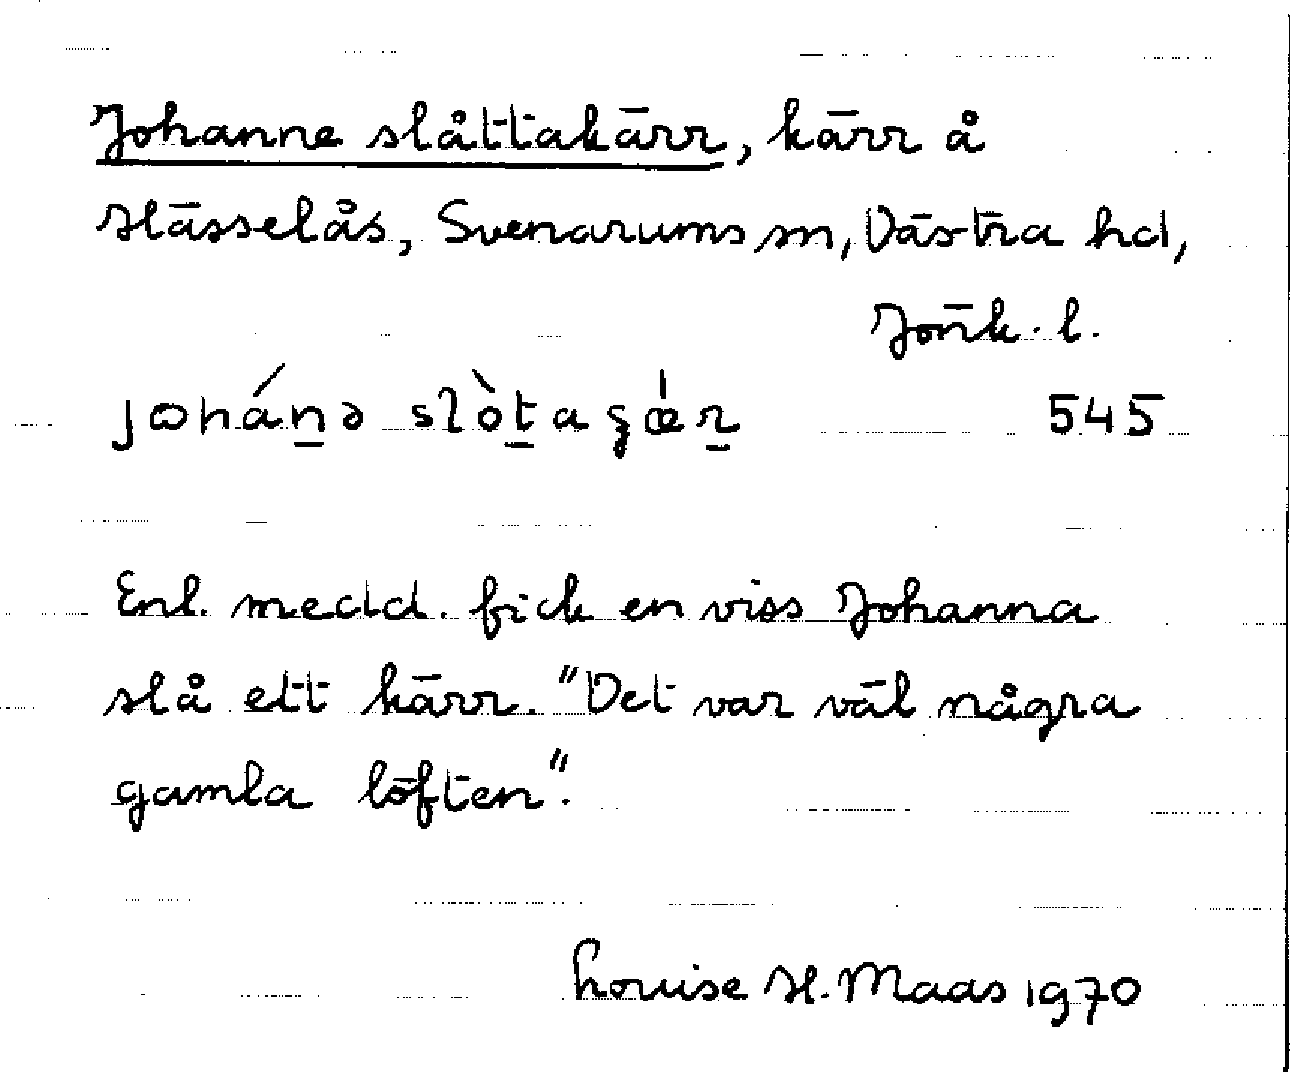 Johanne slåttakärr, kärr å
Hässelås, Svenarums sn, Västra hd,
Jönk. l.
johánə slòta 545
Enl. medd. fick en viss Johanna
slå ett kärr. "Det var väl några
gamla löften".
Louise H. Maas 1970